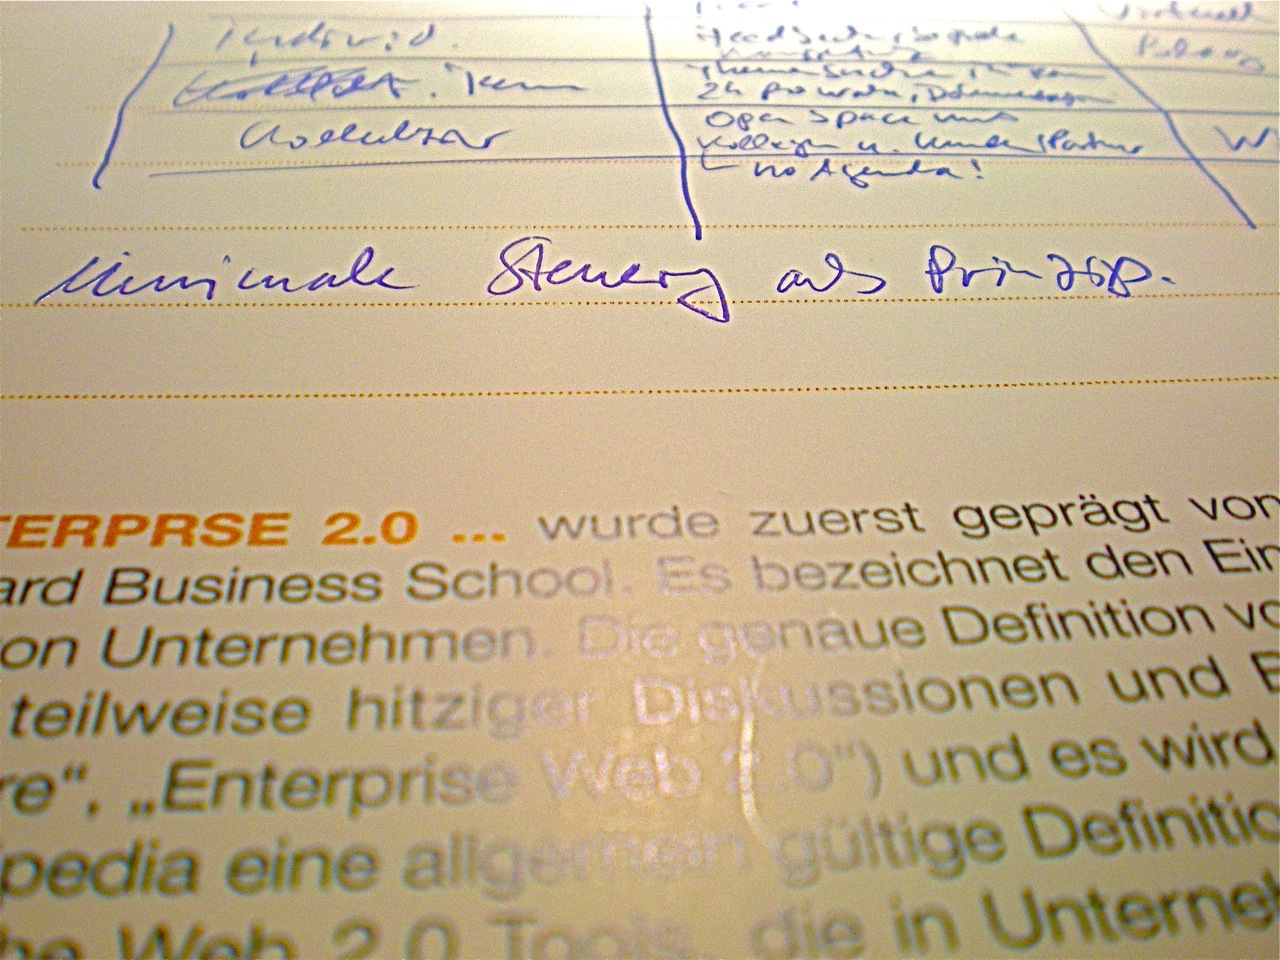 Individ.
Team
Open Space mit
Kollegen u. Kunden/Partner
no Agenda!
Minimale Steuerg als Prinzip.
TERPRSE 2.0 ... wurde zuerst geprägt von
ard Business School. Es bezeichnet den Ein
on Unternehmen. Die genaue Definition vo
teilweise hitziger Diskussionen und B
re“, „Enterprise Web 2.0“) und es wird
pedia eine allgemein gültige Definitio
he Web 2.0 Tools, die in Unterneh